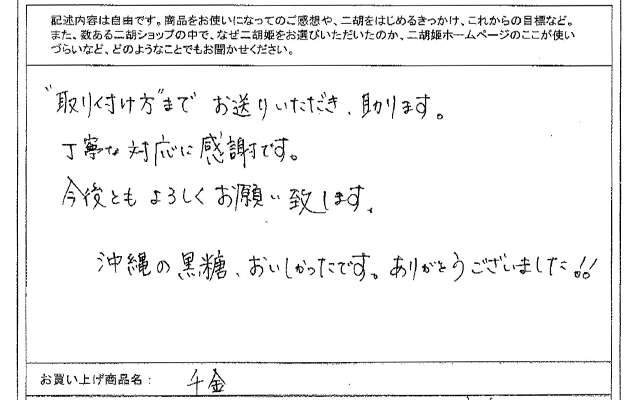 記述内容は自由です。商品をお使いになってのご感想や、二胡をはじめるきっかけ、これからの目標など。
また、数ある二胡ショップの中で、なぜ二胡姫をお選びいただいたのか、二胡姫ホームページのここが使い
づらいなど、どのようなことでもお聞かせください。
"取り付け方"まで お送りいただき、助ります。
丁寧な対応に感謝です。
今後ともよろしくお願い致します。
沖縄の黒糖、おいしかったです。ありがとうございました!!
お買い上げ商品名： 千金